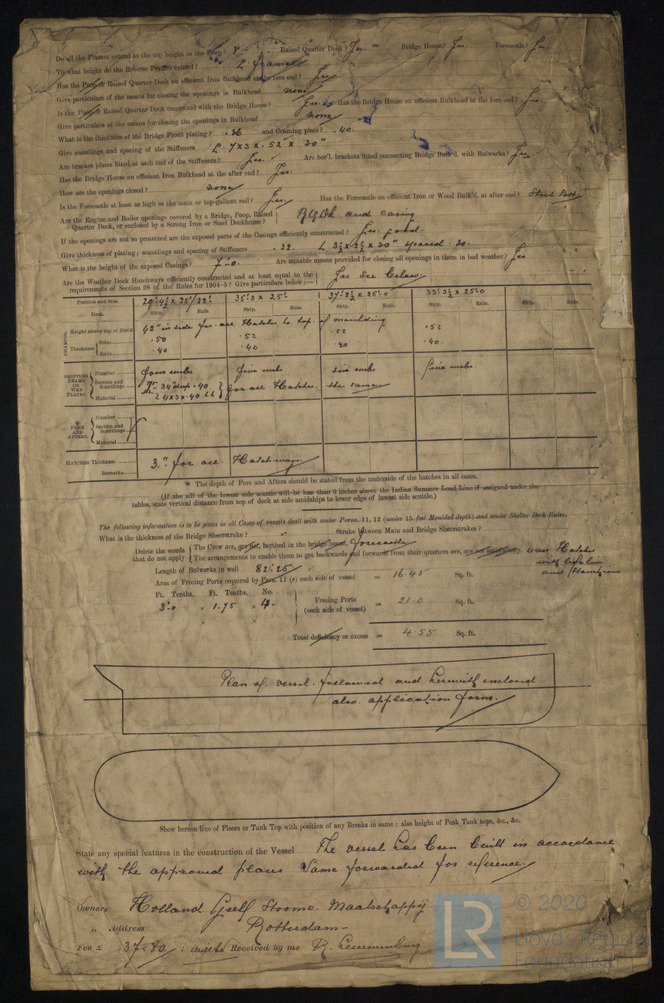 Do all the Frames extend to the top height in the Poop? Raised Quarter Deck? Yes Bridge House? Yes Forecastle? Yes
To what height do the Reverse Frames extend? L Frames
Has the Poop or Raised Quarter Deck an efficient Iron Bulkhead at the fore end? Yes
Give particulars of the means for closing the openings in Bulkhead none
Is the Poop or Raised Quarter Deck connected with the Bridge House? Yes Has the Bridge House an efficient Bulkhead at the fore end? Yes
Give particulars of the means for closing the openings in Bulkhead none
What is the thickness of the Bridge Front plating? .36 and Coaming plate? .40
Give scantlings and spacing of the Stiffeners L 7 x 3 x .52 x 30"
Are bracket plates fitted at each end of the Stiffeners? Yes Are hor'l. brackets fitted connecting Bridge Bulk'd. with Bulwarks? Yes
Has the Bridge House an efficient Iron Bulkhead at the after end? Yes
How are the openings closed? none
Is the Forecastle at least as high as the main or top-gallant rail? Yes Has the Forecastle an efficient Iron or Wood Bulk'd. at after end?
Are the Engine and Boiler openings covered by a Bridge, Poop, Raised
Quarter Deck, or enclosed by a Strong Iron or Steel Deckhouse? and casing
If the openings are not so protected are the exposed parts of the Casings efficiently constructed? Yes
Give thickness of plating; scantlings and spacing of Stiffeners .32 spaced 30
What is the height of the exposed Casings? 7.0 Are suitable means provided for closing all openings in them in bad weather? Yes
Are the Weather Deck Hatchways efficiently constructed and at least equal to the
requirements of Section 28 of the Rules for 1904-5? Give particulars below:— Yes See below
Position and Size.
Item. Ship. Rule. Ship. Rule. Ship. Rule. Ship. Rule.
COAMING. Height above top of DECK 42" in side for all Hatches to top of moulding
Thickness Sides .50 .52 .52 .52
Ends .40 .40 .40 .40
SHIFTING BEAMS OR WEB PLATES. Number four webs five webs six webs five webs
Section and Scantlings for all Hatches the same
Material
* FORE AND AFTERS. Number
Section and Scantlings
Material
HATCHES Thickness 3" for all Hatchways
Remarks
* The depth of Fore and Afters should be stated from the underside of the hatches in all cases.
(If the sill of the lowest side scuttle will be less than 6 inches above the Indian Summer Load Line if assigned under the
tables, state vertical distance from top of deck at side amidships to lower edge of lowest side scuttle.)
The following information is to be given in all Cases of vessels dealt with under Paras. 11, 12 (under 15 feet Moulded depth) and under Shelter Deck Rules.
What is the thickness of the Bridge Sheerstrake? Strake between Main and Bridge Sheerstrakes?
Delete the words that do not apply The Crew are, are not, berthed in the bridge house. forecastle
The arrangements to enable them to get backwards and forwards from their quarters are, are not over Hatches
with lifeline
and
Length of Bulwarks in well 82.25
Area of Freeing Ports required by Para. 11 (e) each side of vessel = 16.45 Sq. ft.
Ft. Tenths. Ft. Tenths. No.
3.0 x 1.75 x 4 Freeing Ports (each side of vessel) = 21.0 Sq. ft.
Total deficiency or excess = 4.55 Sq. ft.
Plan of vessel forwarded and herewith enclosed
also application form.
Show hereon line of Floors or Tank Top with position of any Breaks in same; also height of Peak Tank tops, &c., &c.
State any special features in the construction of the Vessel The vessel has been built in accordance
with the approved plans Same forwarded for reference.
Owners Holland Gulf Stoomv. Maatschappij
" Address Rotterdam
Fee £ Received by me
© 2020
LR Lloyd's Register
Foundation